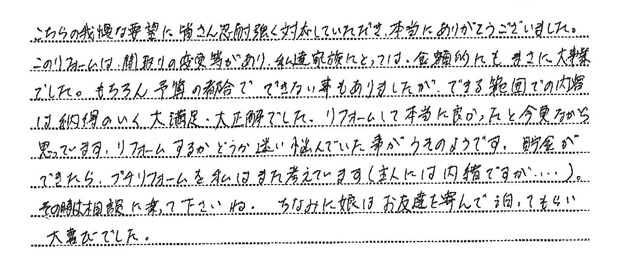 こちらの我慢な要望に皆さん忍耐強く対応していただき、本当にありがとうございました。
このリフォームは、間取りの変更等があり、私達家族にとっては、金額的にも まさに大事業
でした。もちろん予算の都合で できない事もありましたが、できる範囲での内容
は納得のいく大満足・大正解でした。リフォームして本当に良かったと今更ながら
思っています。リフォームするかどうか迷い悩んでいた事がうそのようです。貯金が
できたら、プチリフォームを私はまた考えています(主人には内緒ですが....)。
その時は相談に乗って下さいね。 ちなみに娘はお友達を呼んで泊ってもらい
大喜びでした。